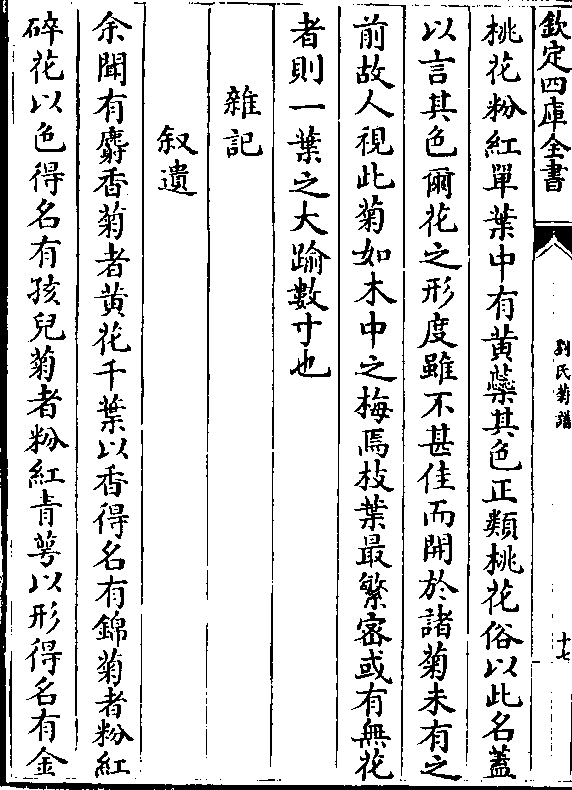 欽定四庫全書
劉氏菊譜
十七
桃花粉紅單葉中有黄蘂其色正類桃花俗以此名蓋
以言其色爾花之形度雖不甚佳而開於諸菊未有之
前故人視此菊如木中之梅焉枝葉最繁密或有無花
者則一葉之大踰數寸也
雜記
叙遺
余聞有麝香菊者黄花千葉以香得名有錦菊者粉紅
碎花以色得名有孩兒菊者粉紅青萼以形得名有金